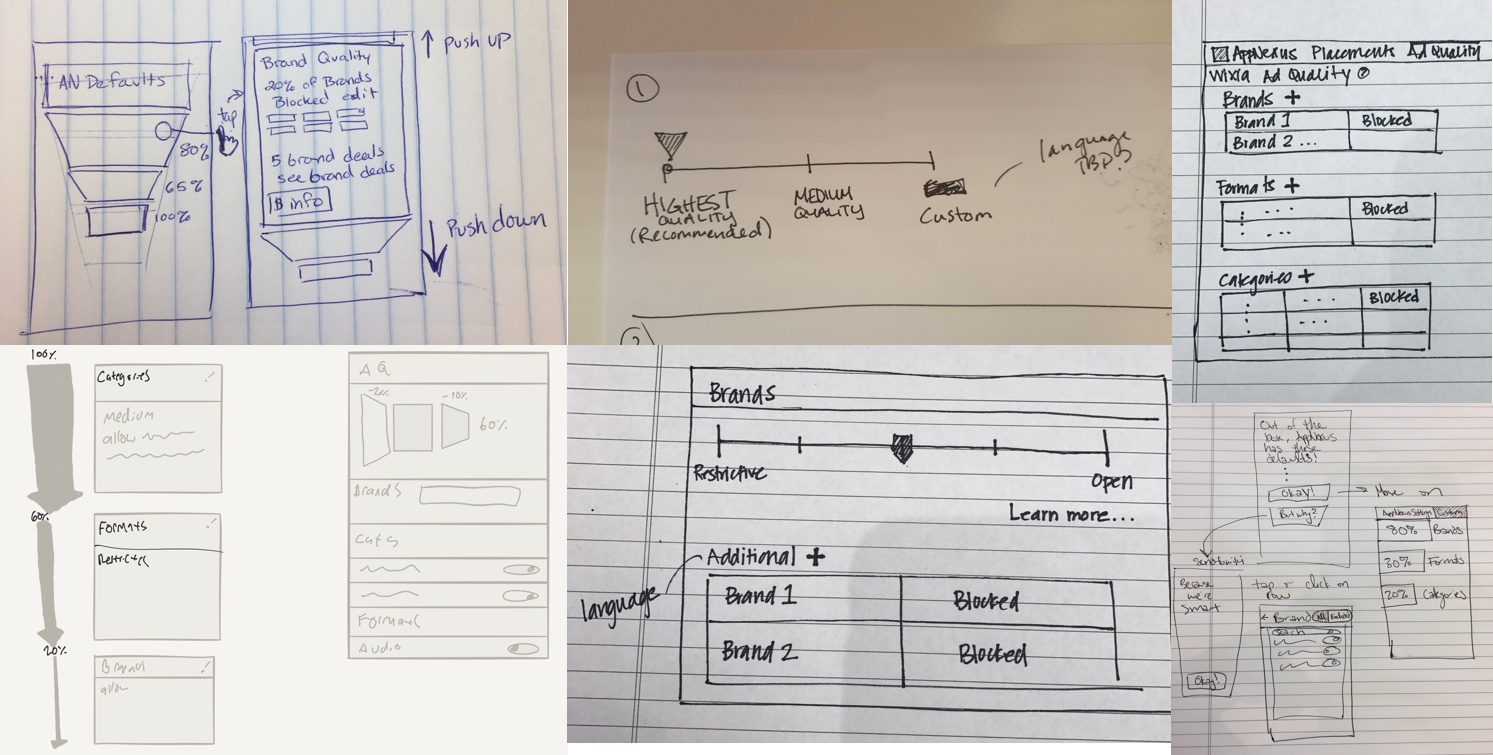 AN Defaults
80%
65%
100%
tap
Brand Quality
20% of Brands
Blocked edit
5 brand deals
see brand deals
$ info
Push up
Push down
1
HIGHEST
QUALITY
(Recommended)
MEDIUM
QUALITY
Custom
language
TBD?
2
AppNexus Placements Ad Quality
Ad Quality
Brands +
Brand 1 Blocked
Brand 2 ...
Formats +
... Blocked
...
Categories +
... Blocked
...
100%
Categories
Medium
allow
60%
Formats
20%
allow
AQ
60%
Brands
Cats
Formats
Audio
Brands
Restrictive
Open
Learn more...
Additional +
language
Brand 1 Blocked
Brand 2 Blocked
Out of the
box, AppNexus
has these
defaults!
Okay!
But why?
Move on
80% Brands
30% Formats
20% Categories
Because
we're
smart
Okay!
tap or click on
row
← Brand
Search